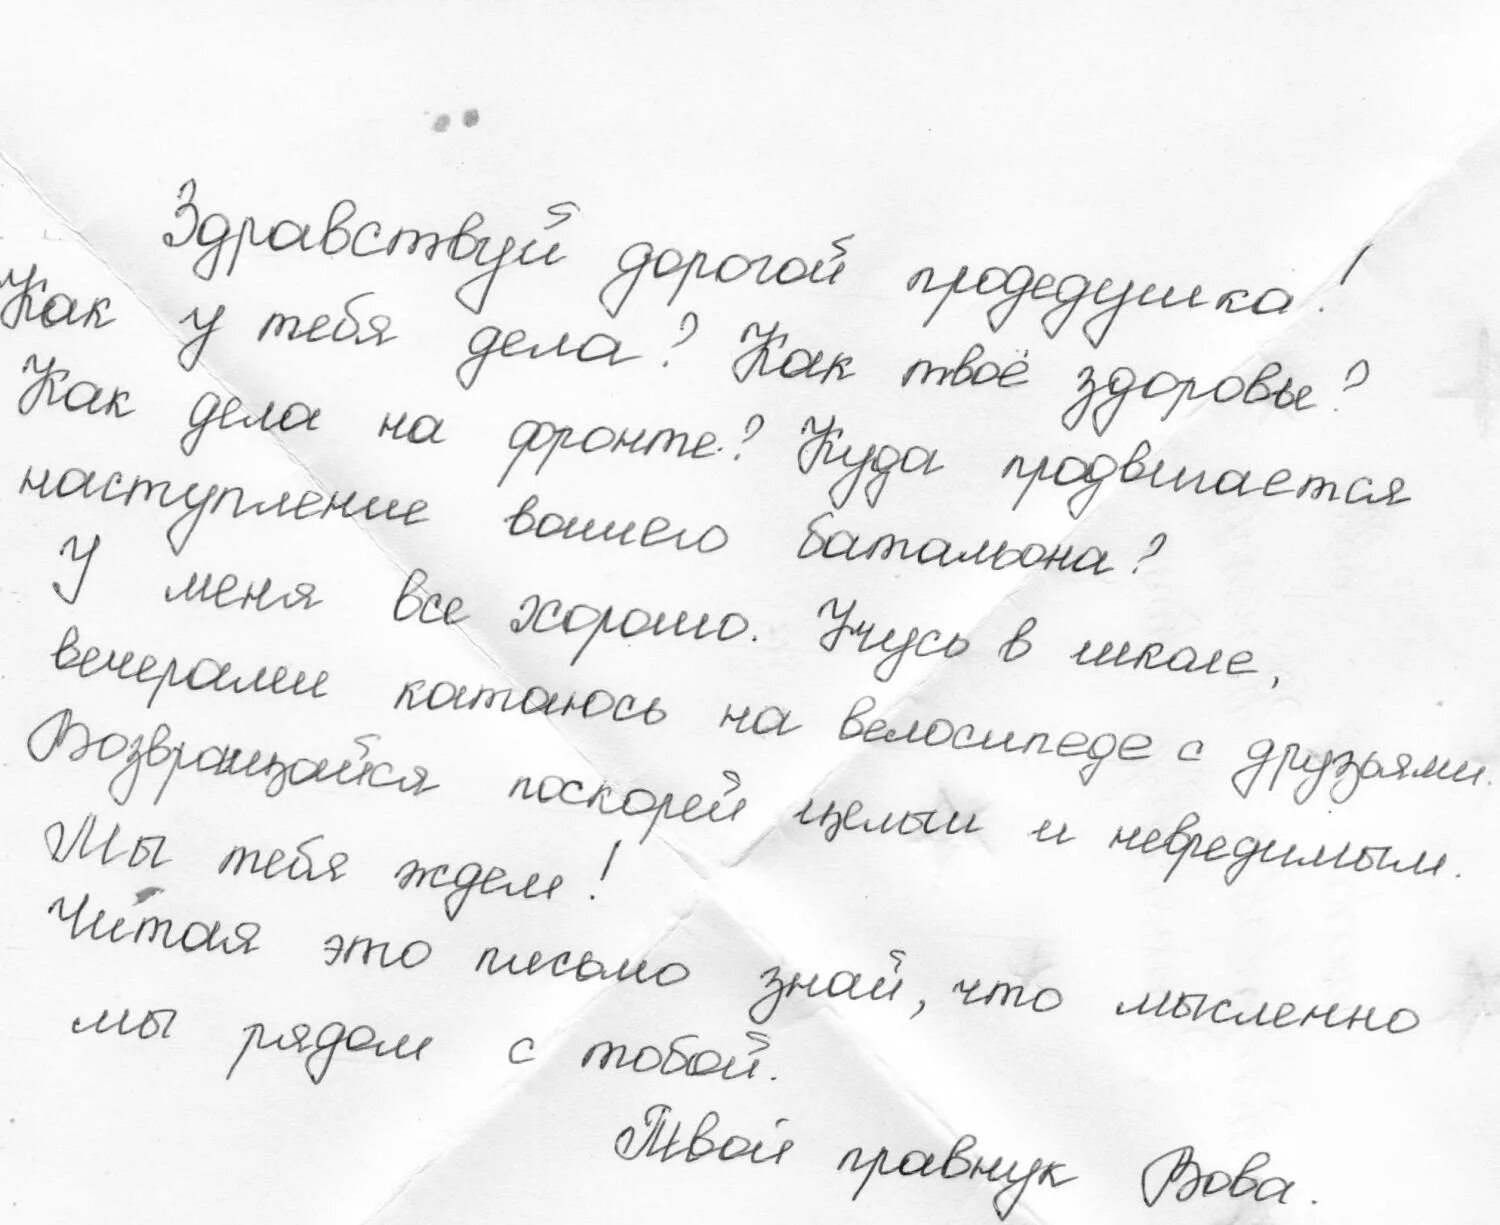 Здравствуй дорогой продедушка!
Как у тебя дела? Как твоё здоровье?
Как дела на фронте? Куда продвигается
наступление вашего батальона?
У меня все хорошо. Учусь в школе,
вечерами катаюсь на велосипеде с друзьями.
Возвращайся поскорей целым и невредимым.
Мы тебя ждем!
Читая это письмо знай, что мысленно
мы рядом с тобой.
Твой правнук Вова.